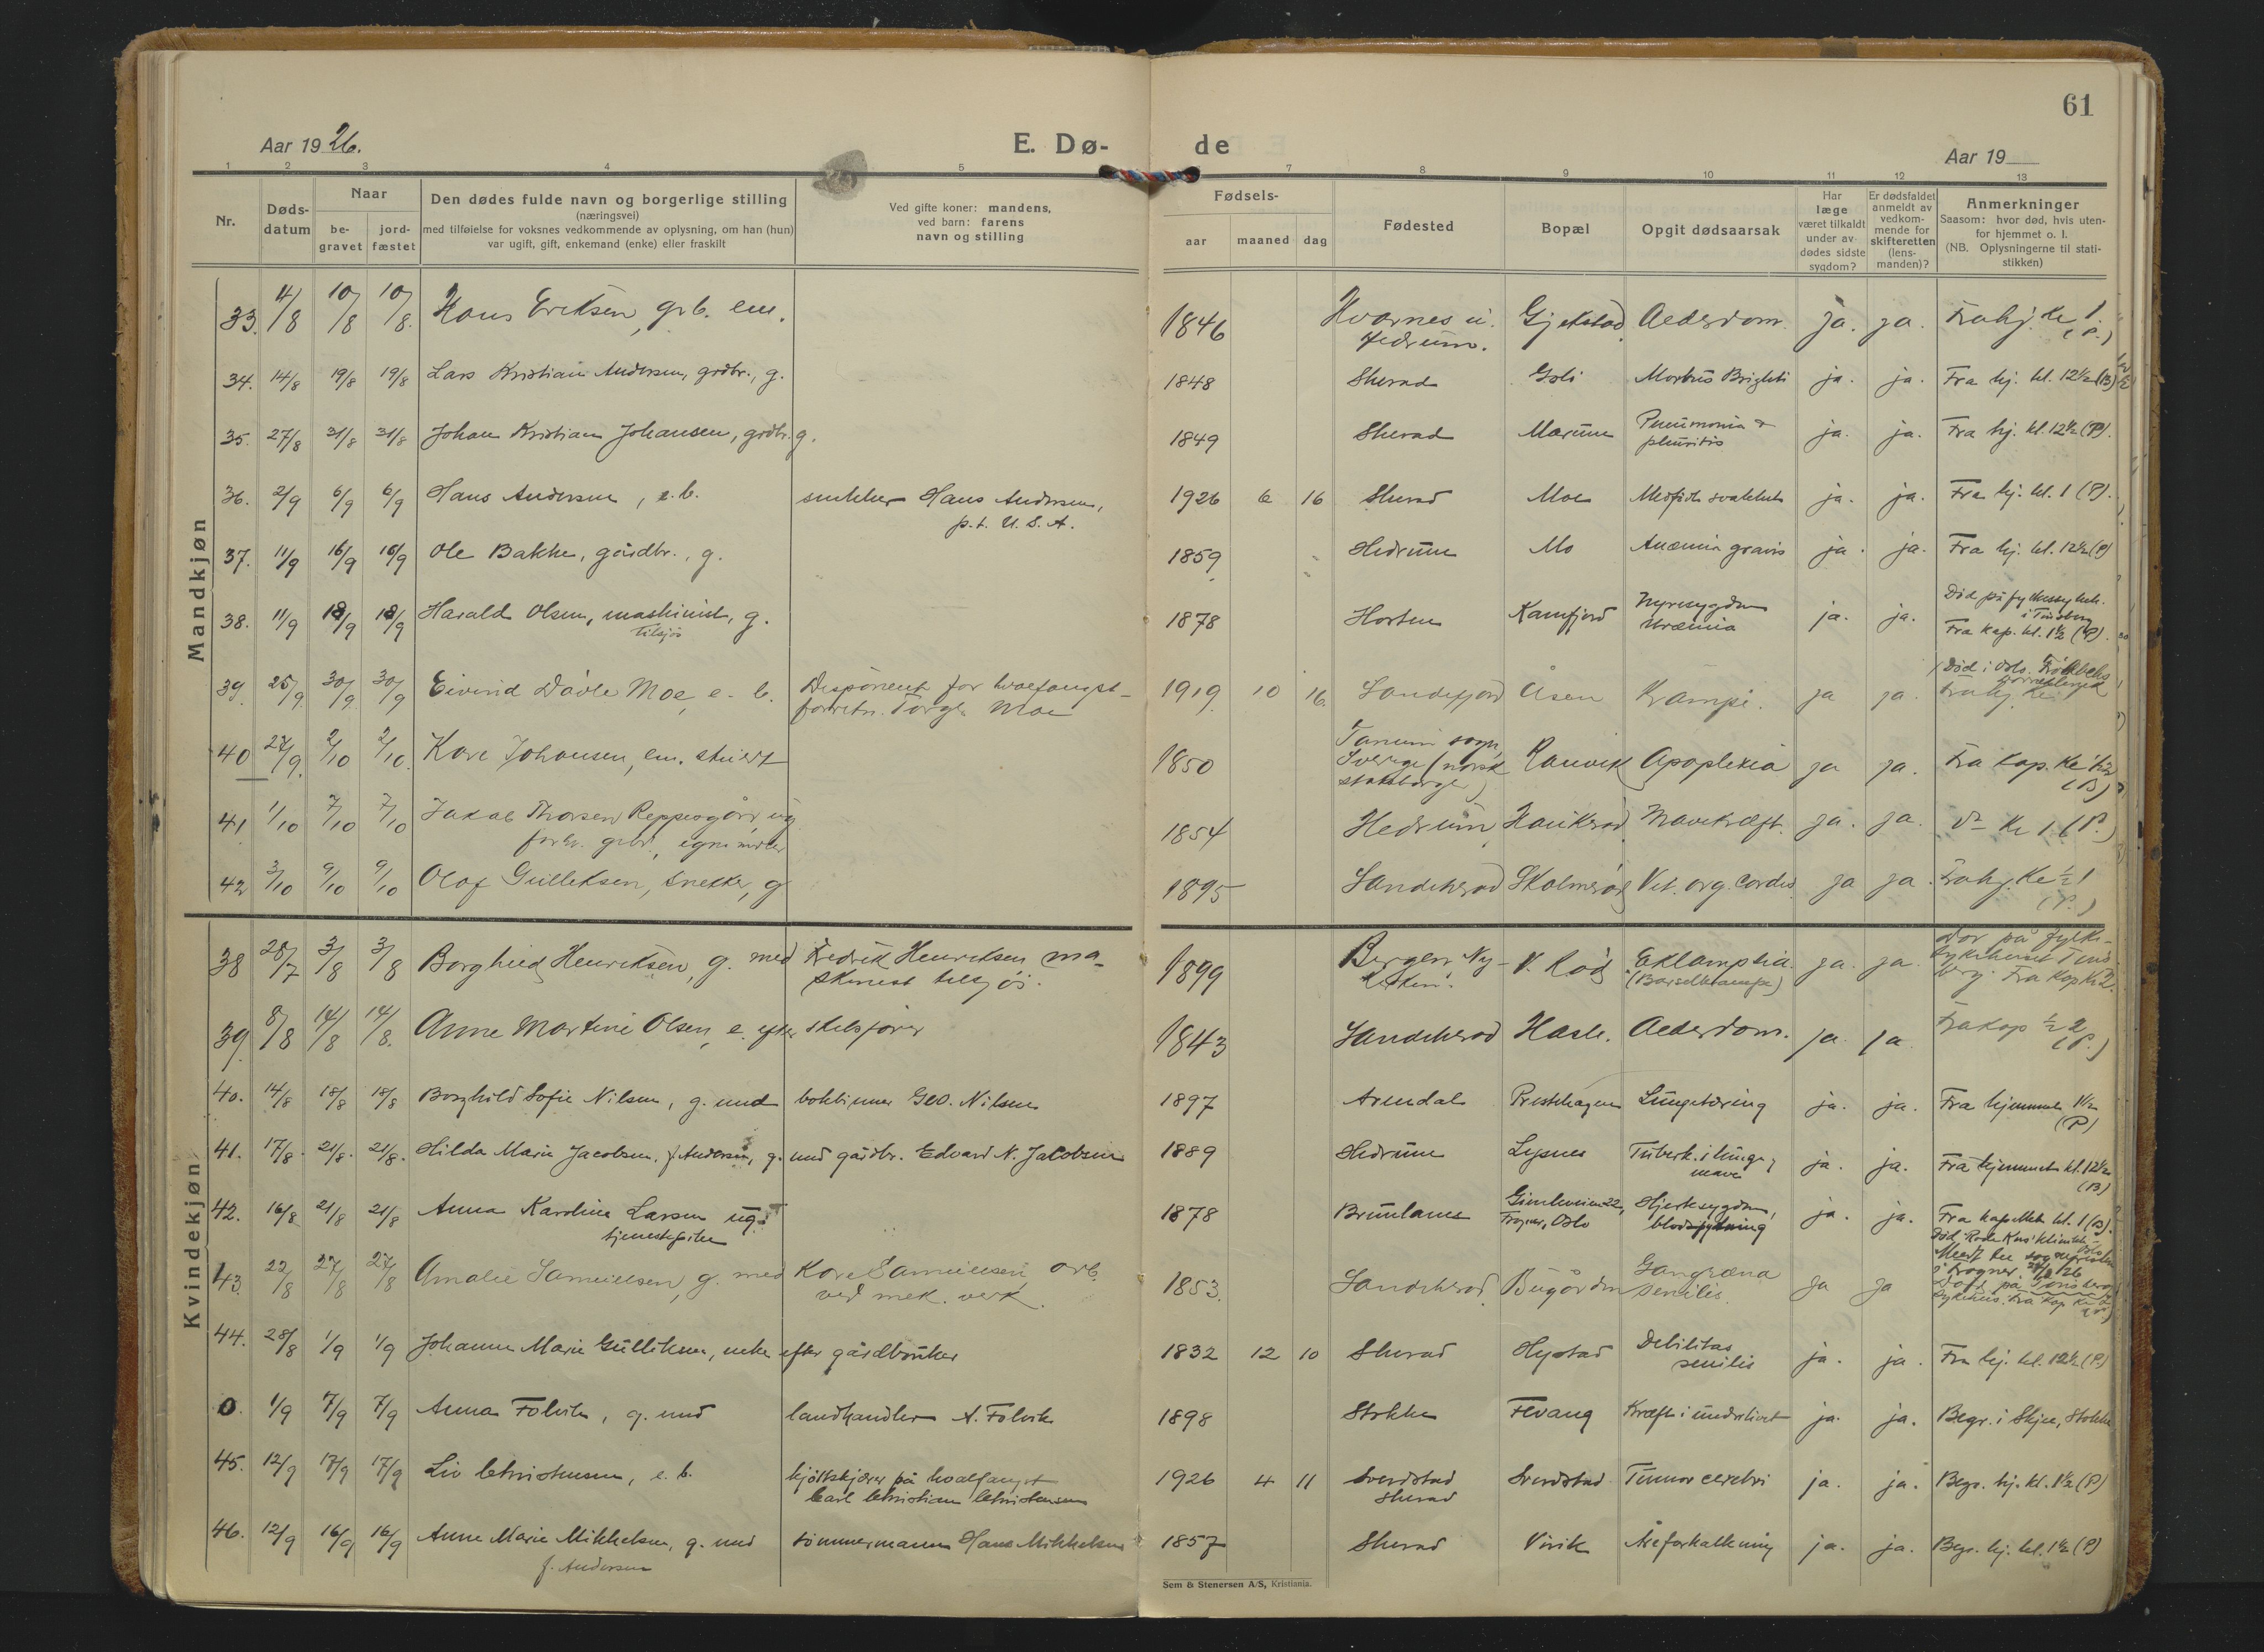 61
Aar 1926.
E. Dø-
de
Aar 19
1 2 3 4 5 7 8 9 10 11 12 13
Nr.
Døds-
datum
Naar
be-
gravet
jord-
fæstet
Den dødes fulde navn og borgerlige stilling
(næringsvei)
med tilføielse for voksnes vedkommende av oplysning, om han (hun)
var ugift, gift, enkemand (enke) eller fraskilt
Ved gifte koner: mandens,
ved barn: farens
navn og stilling
Fødsels-
aar maaned dag
Fødested
Bopæl
Opgit dødsaarsak
Har
læge
været tilkaldt
under av-
dødes sidste
sygdom?
Er dødsfaldet
anmeldt av
vedkom-
mende for
skifteretten
(lens-
manden)?
Anmerkninger
Saasom: hvor død, hvis uten-
for hjemmet o. l.
(NB. Oplysningerne til stati-
stikken)
Mandkjøn
33. 4/8 10/8 10/8. Hans Eriksen, grb. em. 1846 Hvarnes i Gjekstad Alderdom. ja. ja. Fra hj. kl 1
Hedrum. (P.)
34. 14/8 19/8 19/8 Lars Kristian Andersen, grdbr., g. 1848 Sherad Goli Morbus Brighti ja. ja. Fra hj. kl. 12½ (B)
35. 27/8 31/8 31/8 Johan Kristian Johansen, grdbr. g. 1849 Sherad Marum Pneumonia &
pleuritis ja. ja. Fra hj. kl. 12½ (P).
36. 2/9 6/9 6/9 Hans Andersen, e. b. snekker Hans Andersen, 1926 6 16 Sherad Moe Medfødt svakhet ja. ja. Fra hj. kl. 1 (P).
p.t. U.S.A.
37. 11/9 16/9 16/9 Ole Bakke, gårdbr., g. 1859 Hedrum Mo Anæmia gravis ja. ja. Fra hj. kl. 12½ (P)
38. 11/9 18/9 18/9 Harald Olsen, maskinist, g. 1878 Horten Kamfjord Nyresygdom ja. ja. Død på fylkessykeh.
tilsjøs Uræmia i Tønsberg
Fra kap. kl. 1½ (P).
39. 25/9 30/9 30/9 Eivind Dåvle Moe, e. b. Disponent for hvalfangst- 1919 10 16. Sandefjord Åsen Krampe. ja ja. Død i Oslo
forretn. Torgr. Moe Fra hj. kl
40 27/9. 2/10 2/10. Kare Johansen, em. stuert 1850 Tanum sogn, Ranvik Apoplexia ja ja. Fra kap. kl
Sverige (norsk
statsborger) (B)
41 1/10 7/10 7/10 Jakob Thorsen Reppesgård, ug 1854 Hedrum Haukerød Mavekræft. ja. ja. do kl 1 (P.)
forhv. grbr., egne midler
42 3/10 9/10 9/10 Olaf Gulliksen, snekker, g 1895 Sandeherad Skolmerød Vit. org. cordis ja ja. Fra hj. kl ½ 1
(P.)
Kvindekjøn
38 28/7 3/8 3/8 Borghild Henriksen, g. med Fredrik Henriksen ma- 1899 Bergen Ny- V. Rød Eklampsia. ja. ja.
skinist tilsjøs. kirken. (Barselkrampe) Fra kap kl 2.
39. 8/8 14/8 14/8. Anne Martine Olsen, e. efter skibsfører 1843 Sandeherad Hasle. Alderdom. ja ja Fra kap ½ 2
(P.)
40. 14/8 18/8 18/8 Borghild Sofie Nilsen, g. med bokbinner Geo. Nilsen 1897 Arendal Prestehagen Lungetæring ja. ja. Fra hjemmet 1½
(P)
41. 17/8. 21/8. 21/8. Hilda Marie Jacobsen, f. Andersen, g. med gårdbr. Edvard N. Jacobsen 1889 Hedrum Lysnes Tuberk. i lunge, ja. ja. Fra hjemmet kl. 12½
mave (B)
42. 16/8 21/8 21/8 Anna Karoline Larsen ug. 1878 Brunlanes Gimleveien 22, Hjertesygdom, ja. ja. Fra kapellet kl. 1 (B).
tjenestepike Frogner, Oslo blodspytning Død Røde Kors' klinikk
Oslo
i Frogner
43. 22/8 27/8 27/8 Amalie Samuelsen, g. med Kare Samuelsen arb. 1853. Sandeherad Bugården Gangræna ja ja Død på Tønsberg
ved mek. verk. senilis. sykehus. Fra kap kl
44. 28/8 1/9 1/9 Johanne Marie Gulliksen, enke efter gårdbruker 1832 12 10 Sherad Hystad Debilitas ja. ja. Fra hj. kl. 12½ (P)
senilis
0. 1/9 7/9 7/9 Anna Folvik, g. med landhandler A. Folvik 1898 Stokke Fevang Kræft i underlivet ja. ja. Begr. i Skjee, Stokke
45. 12/9 17/9 17/9 Liv Christensen, e. b. kjøttskjærer på hvalfangst 1926 4 11 Svendstad Svendstad Tumor cerebri ja. ja. Begr. hj. kl. 1½ (P)
Carl Christian Christensen Sherad
46. 12/9 16/9 16/9 Anne Marie Mikkelsen, g. med tømmermann Hans Mikkelsen 1857 Sherad Virik Åreforkalkning ja. ja. Begr. hj. kl. 1½ (P)
f. Andersen
Sem & Stenersen A/S, Kristiania.